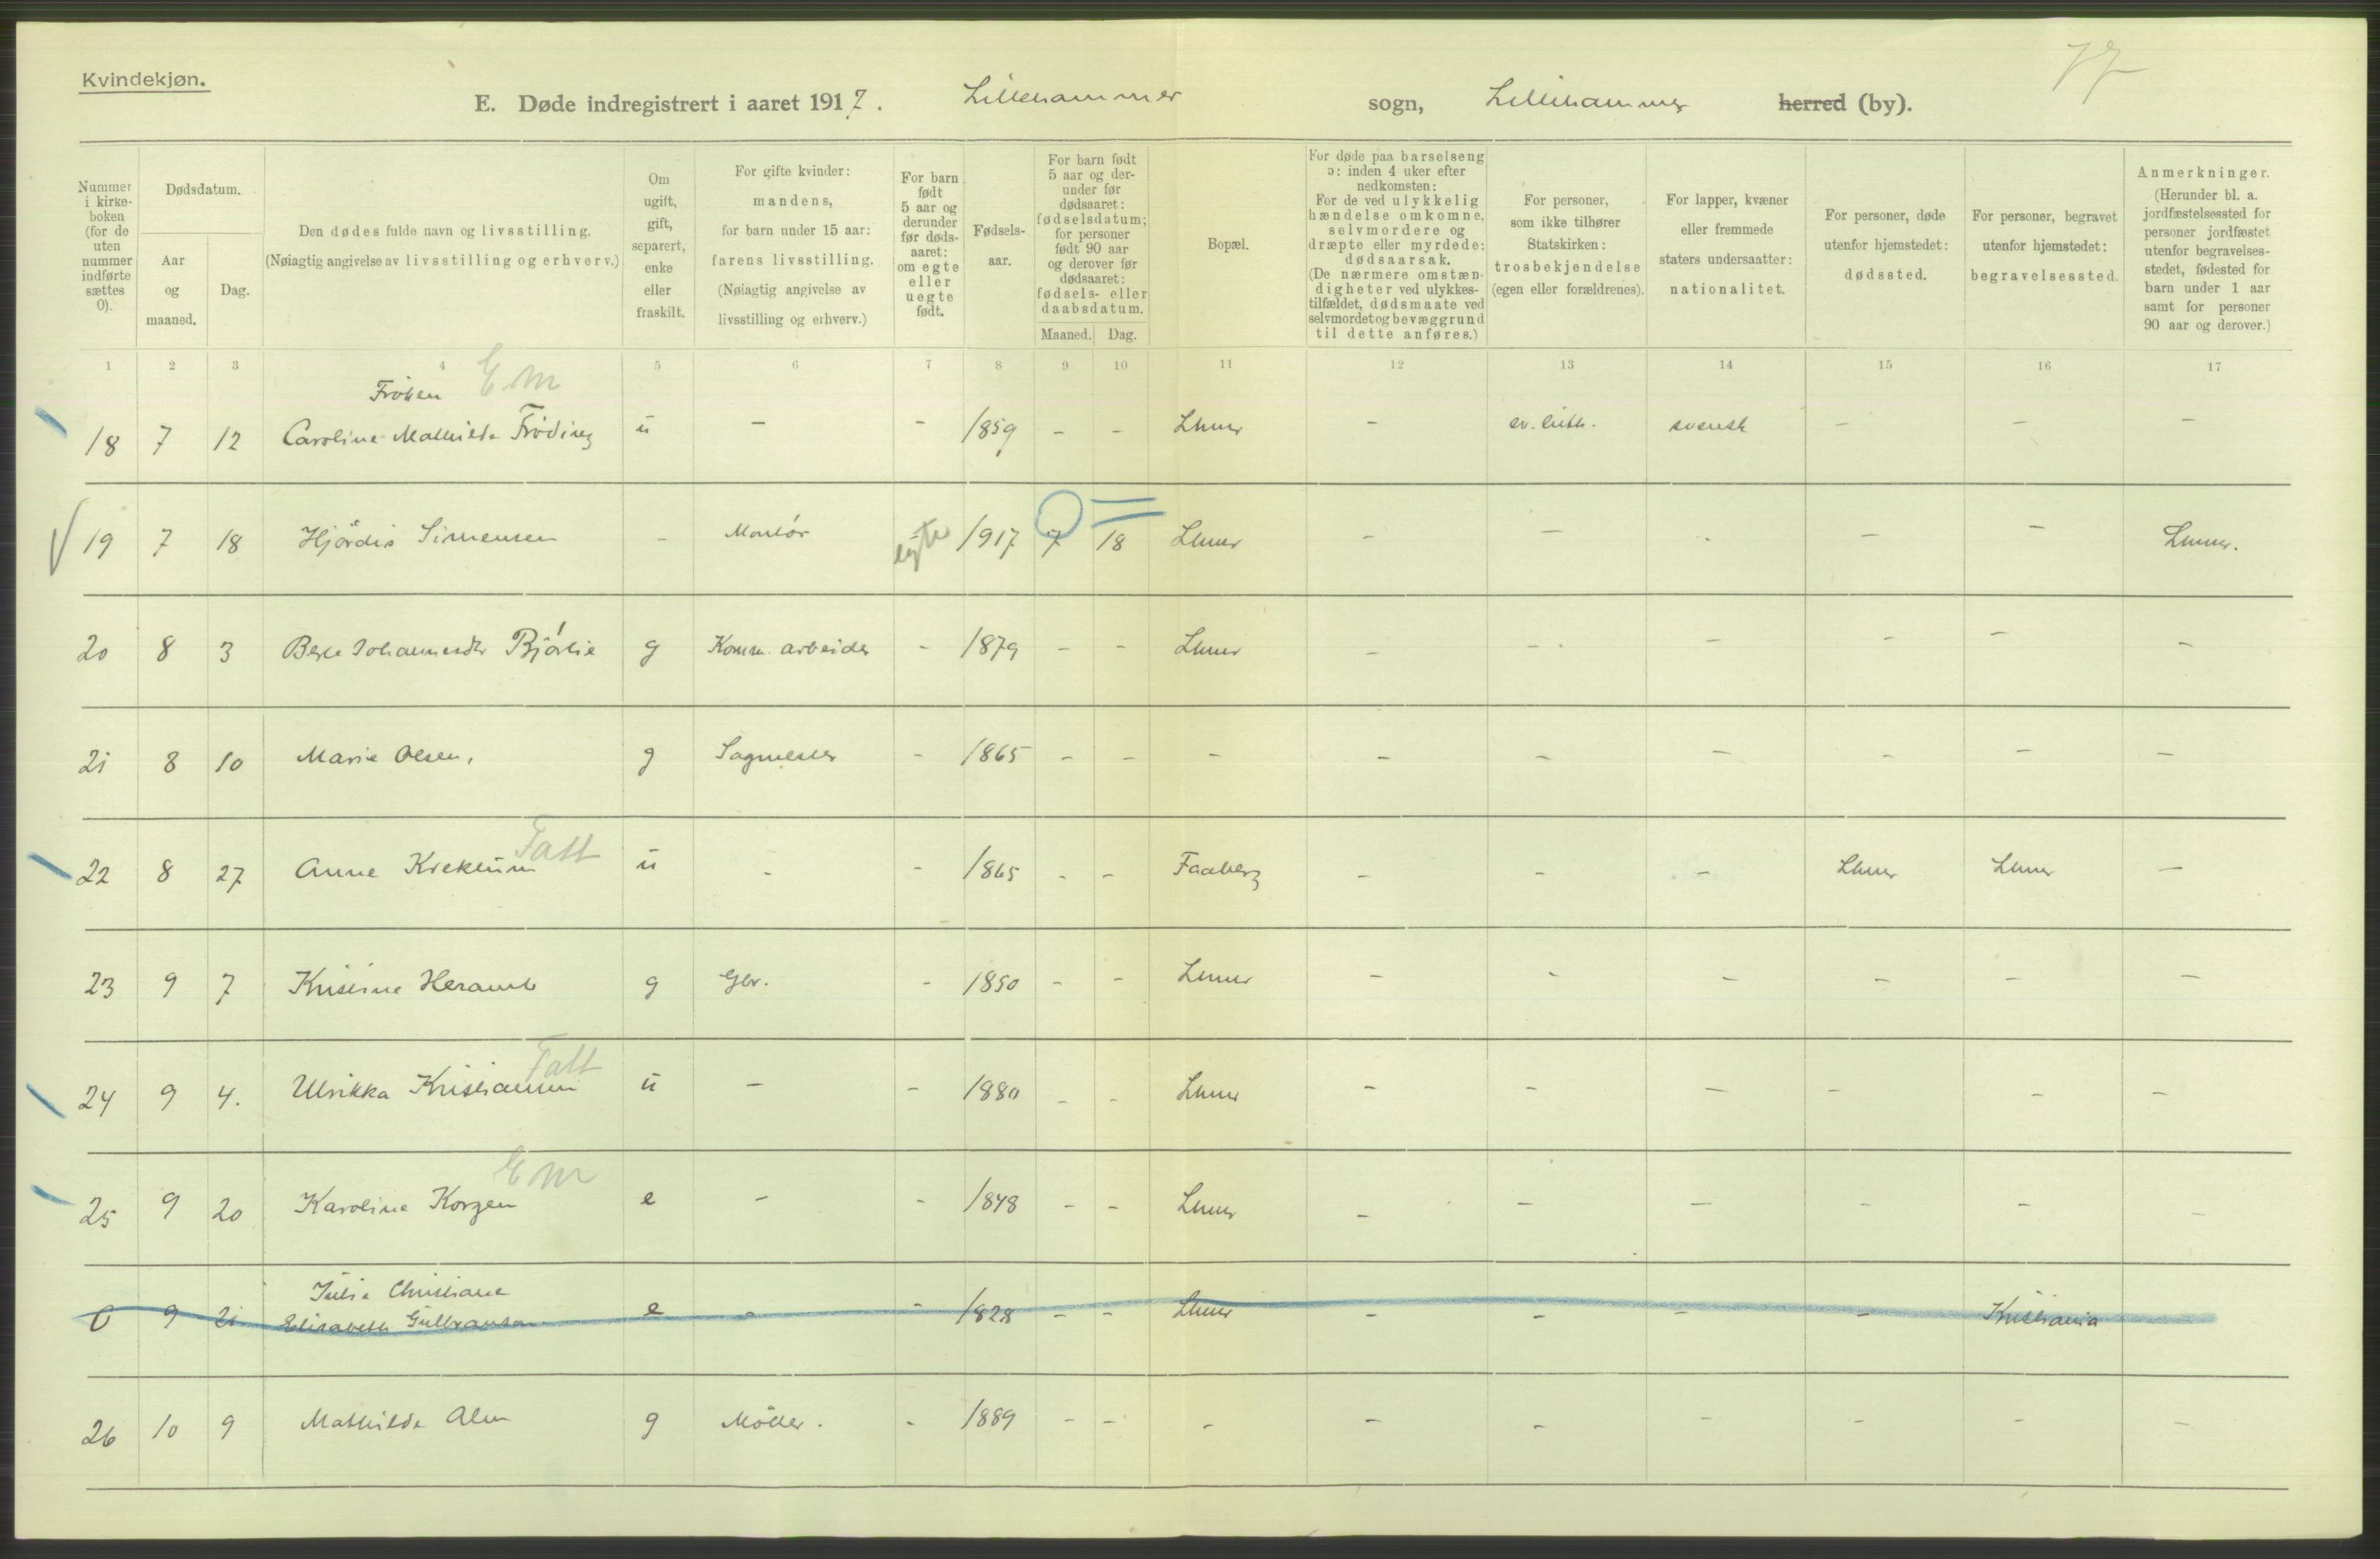 77
Kvindekjøn.
E. Døde indregistrert i aaret 1917. Lillehammer sogn, Lillehammer herred (by).
Nummer i kirkeboken (for de uten nummer indførte sættes 0).
Dødsdatum.
Aar og maaned.
Dag.
Den dødes fulde navn og livsstilling.
(Nøiagtig angivelse av livsstilling og erhverv.)
Om ugift, gift, separert, enke eller fraskilt.
For gifte kvinder: mandens, for barn under 15 aar: farens livsstilling.
(Nøiagtig angivelse av livsstilling og erhverv.)
For barn født 5 aar og derunder før dødsaaret: om egte eller uegte født.
Fødselsaar.
For barn født 5 aar og derunder før dødsaaret: fødselsdatum; for personer født 90 aar og derover før dødsaaret: fødsels- eller daabsdatum.
Maaned. Dag.
Bopæl.
For døde paa barselseng ɔ: inden 4 uker efter nedkomsten: For de ved ulykkelig hændelse omkomne, selvmordere og dræpte eller myrdede: dødsaarsak.
(De nærmere omstændigheter ved ulykkestilfældet, dødsmaate ved selvmordet og bevæggrund til dette anføres.)
For personer, som ikke tilhører Statskirken: trosbekjendelse (egen eller forældrenes).
For lapper, kvæner eller fremmede staters undersaatter: nationalitet.
For personer, døde utenfor hjemstedet: dødssted.
For personer, begravet utenfor hjemstedet: begravelsessted.
Anmerkninger.
(Herunder bl. a. jordfæstelsessted for personer jordfæstet utenfor begravelsesstedet, fødested for barn under 1 aar samt for personer 90 aar og derover.)
1 2 3 4 5 6 7 8 9 10 11 12 13 14 15 16 17
Frøken Em
18 7 12 Caroline Mathilde Fröding u – – 1859 – – Lhmr – ev. luth. svensk – – –
19 7 18 Hjördis Simensen – Montör egte 1917 7 18 Lhmr – – – – – Lhmr.
20 8 3 Berte Johannesdtr Bjørlie g Komm. arbeider – 1879 – – Lhmr – – – – – –
21 8 10 Marie Olsen, g Sagmester – 1865 – – – – – – – – –
Fatt
22 8 27 Anne Krekum u – – 1865 – – Faaberg – – – Lhmr Lhmr –
23 9 7 Kristine Heramb g Gbr. – 1850 – – Lhmr – – – – – –
Fatt
24 9 4. Ulrikka Kristiansen u – – 1880 – – Lhmr – – – – – –
Em
25 9 20 Karoline Korgen e – – 1848 – – Lhmr – – – – – –
Julie Christiane
0 9 21 Elisabeth Gulbranson e – – 1828 – – Lhmr – – – – Kristiania
26 10 9 Mathilde Alm g Möller. – 1889 – – – – – – – – –